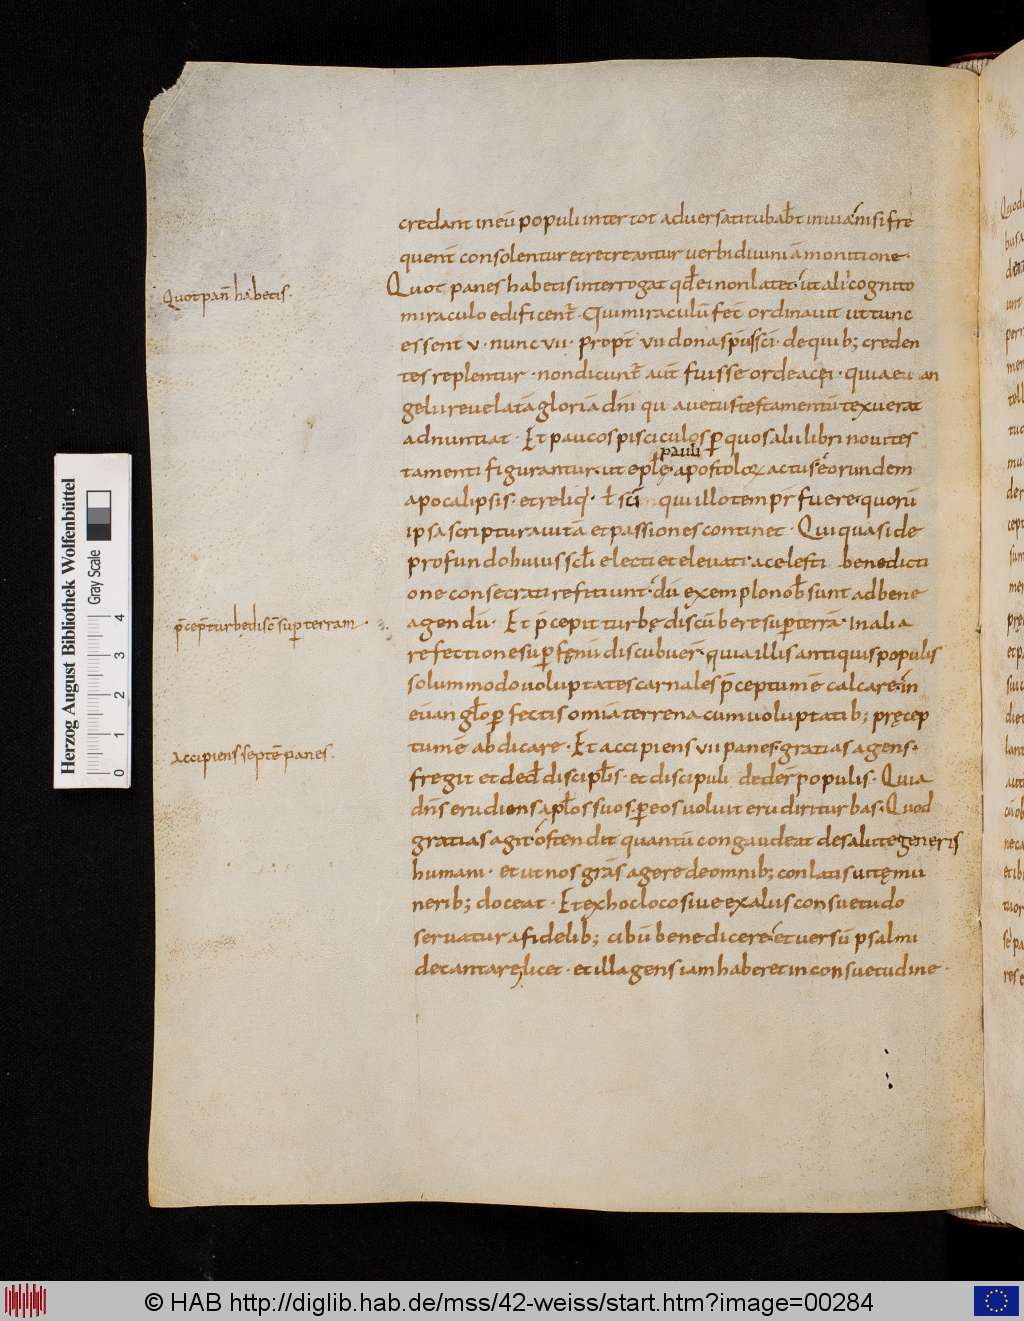 credant in eū populi inter tot adversa titubab̄t in via nisi fre
quent̄ consolentur et retreantur verbi divini āmonitione.
Quot pan̄ habetis.
Quot panes habetis interrogat qđ ei non latet. ut ali cognito
miraculo edificent᷑. Qui miraculū fec̄ ordinavit ut tunc
essent v. nunc vii. propt̄ vii dona sp̄us sc̄i. de quib; creden
tes replentur. non dicunt᷑ aūt fuisse ordeacęi. quia eu an
gelii revelata gloria dn̄i qu a vetus testamentū texuerat
adnuntiat. Et paucos pisciculos ꝑ quos alii libri novi tes
pauli
tamenti figurantur. ut eplę apostoloꝝ actus eorundem
apocalipsis. et reliq̄. ł sc̄i qui illo temp̄r fuere. quorū
ipsa scriptura vitā et passiones continet. Qui quasi de
profundo huius scl̄i electi et elevati. a celesti benedicti
one consecrati refitiunt. dū exemplo nob̄ sunt ad bene
p̄cep̄ turbę disc̄ suꝑ terram.
agendū. Et p̄cepit turbę discūbere suꝑ terrā. In alia
refectione suꝑ fęnū discubuer̄. quia illis antiquis populis
solummodo voluptates carnales p̄ceptum ē calcare. in
evangl̄o ꝑfectis om̄ia terrena cum voluptatib; pręcep
Accipiens septē panes.
tum ē abdicare. Et accipiens vii panes. gratias agens.
fregit et ded̄ discipl̄is. et discipuli deder̄ populis. Quia
dn̄s erudiens apl̄os suos. ꝑ eos voluit erudiri turbas. Quod
gratias agit ostendit quantū congaudeat de salute generis
humani. et ut nos grās agere de omnib; conlatis vitę mu
nerib; doceat. Et ex hoc loco sive ex aliis consvetudo
servatur a fidelib; cibū benedicere. et versū psalmi
decantare licet. et illa gens iam haberet in consvetudine.
Herzog August Bibliothek Wolfenbüttel
Gray Scale
0 1 2 3 4
© HAB http://diglib.hab.de/mss/42-weiss/start.htm?image=00284